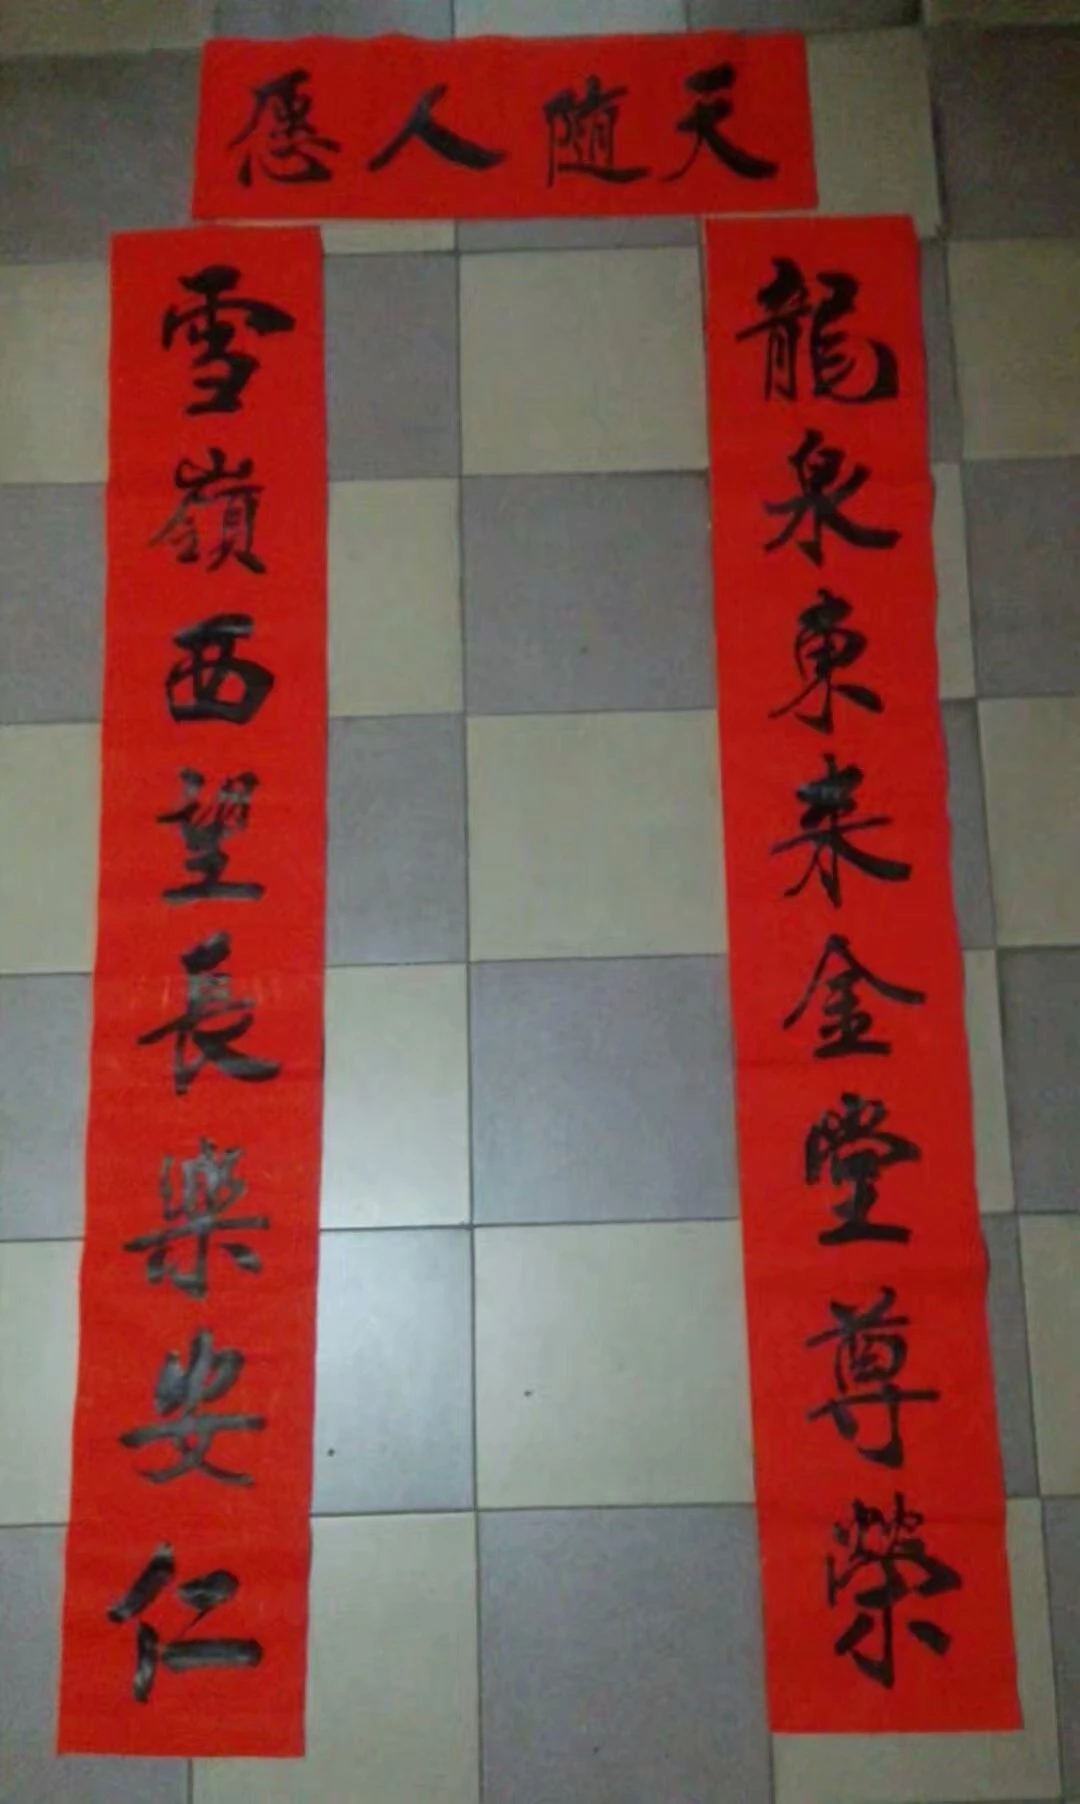 天随人愿
龍泉東来金堂尊榮
雪嶺西望長樂安仁